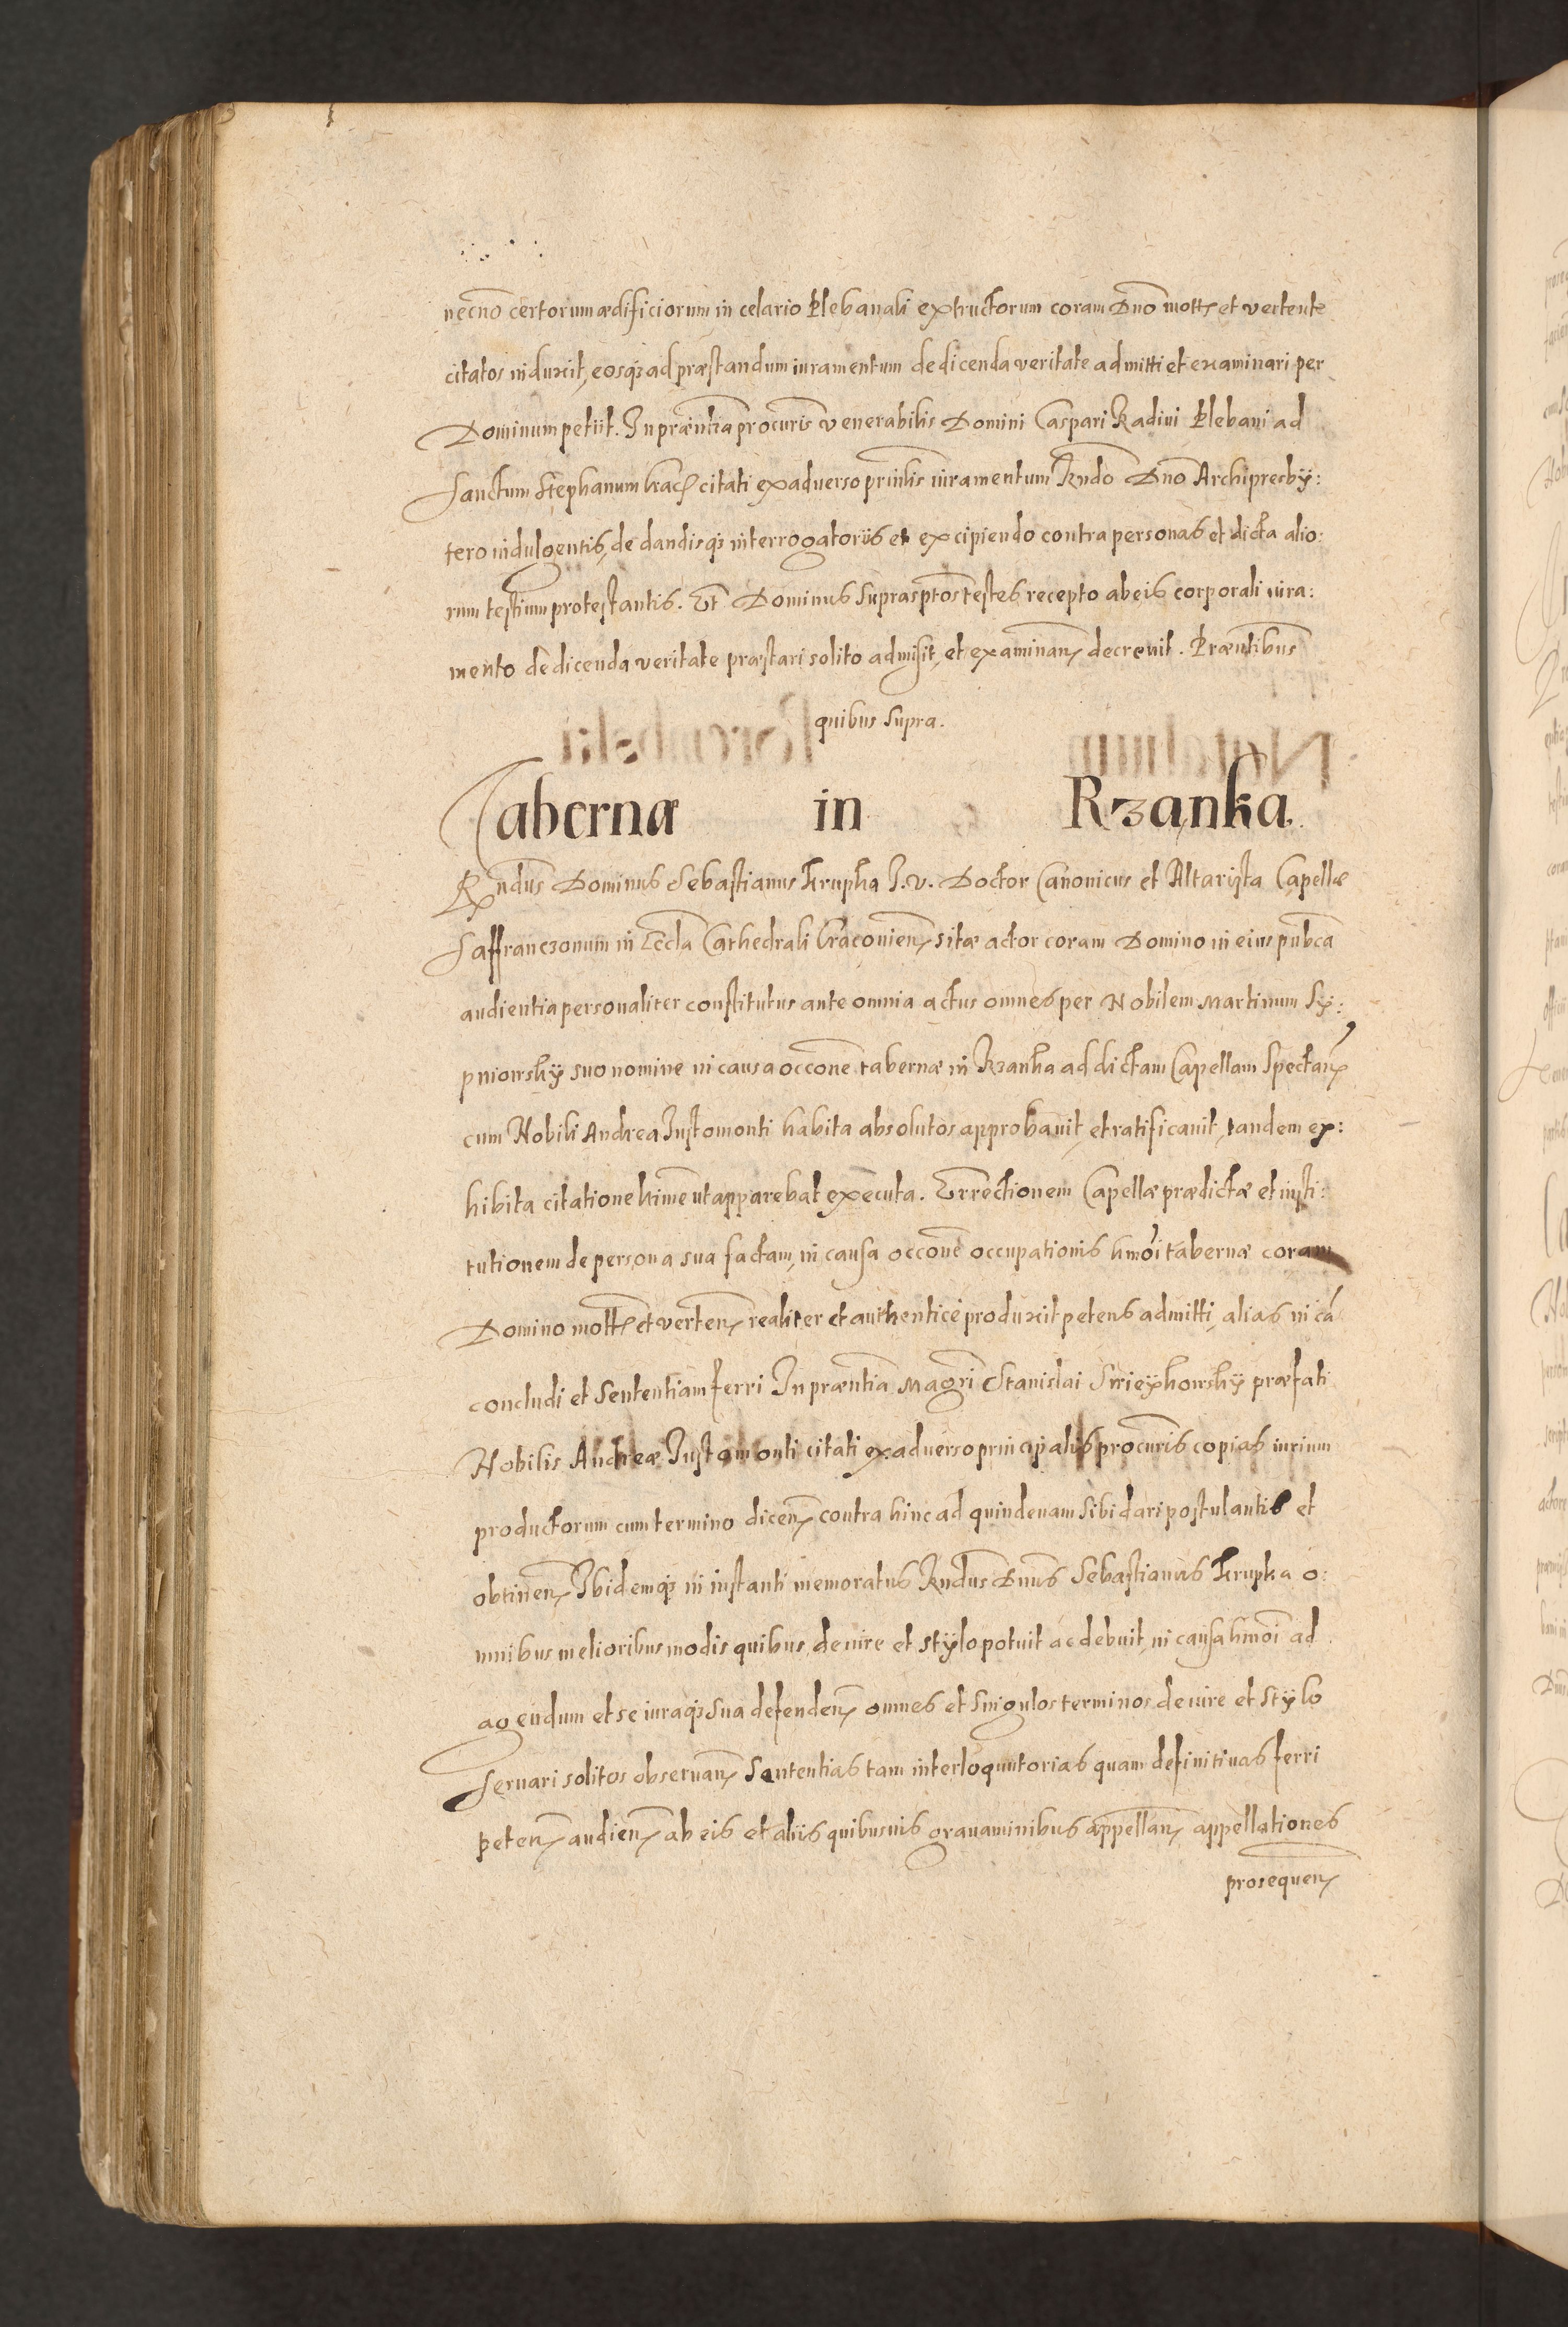 necno certorum ædificiorum in celario Plebanali extructorum coram Dno mott et vertente
citatos induxit, eosq3 ad præstandum iuramentum de dicenda veritate admitti et examinari per
Dominum petiit. In præntia procuris venerabilis Domini Caspari Radini Plebani ad
Sanctum Stephanum Crac citati ex adverso prinlis iuramentum Rndo Dno Archipresby:
tero indulgentis, de dandisq3 interrogatoriis et excipiendo contra personas et dicta alio:
rum testium protestantis. Et Dominus suprasptos testes recepto ab eis corporali iura:
mento de dicenda veritate præstari solito admisit, et examinan decrevit. Præntibus
quibus supra.
Taberna in Rzanka
Rndus Dominus Sebastianus Krupka J. v. Doctor Canonicus et Altarista Capellæ
Saffranczonum in Eccla Cathedrali Cracovien sitæ actor coram Domino in eius publca
audientia personaliter constitutus ante omnia actus omnes per Nobilem Martinum Sy:
pniowsky suo nomine in causa occone tabernæ in Rzanka ad dictam Capellam spectan
cum Nobili Andrea Justomonti habita absolutos approbavit, et ratificavit, tandem ex:
hibita citatione hmne ut apparebat executa. Errectionem Capellæ prædictæ et insti:
tutionem de persona sua factam, in causa occone occupationis hmoi tabernæ coram
Domino mott et verten realiter et authentice produxit petens admitti, alias in ca
concludi et sententiam ferri In præntia Magri Stanislai præfati
Nobilis Andreæ Justomonti citati ex adverso principalis procuris copias iurium
productorum cum termino dicen contra hinc ad quindenam sibi dari postulantis et
obtinen Ibidemq3 in instanti memoratus Rndus Dnus Sebastianus Krupka o:
mnibus melioribus modis quibus de iure et stylo potuit ac debuit, in causa hmoi ad
agendum et se iuraq3 sua defenden omnes et singulos terminos de iure et stylo
servari solitos observan Sententias tam interloquutorias quam definitivas ferri
peten audien ab eis et aliis quibusvis gravaminibus appellan appellationes
prosequen